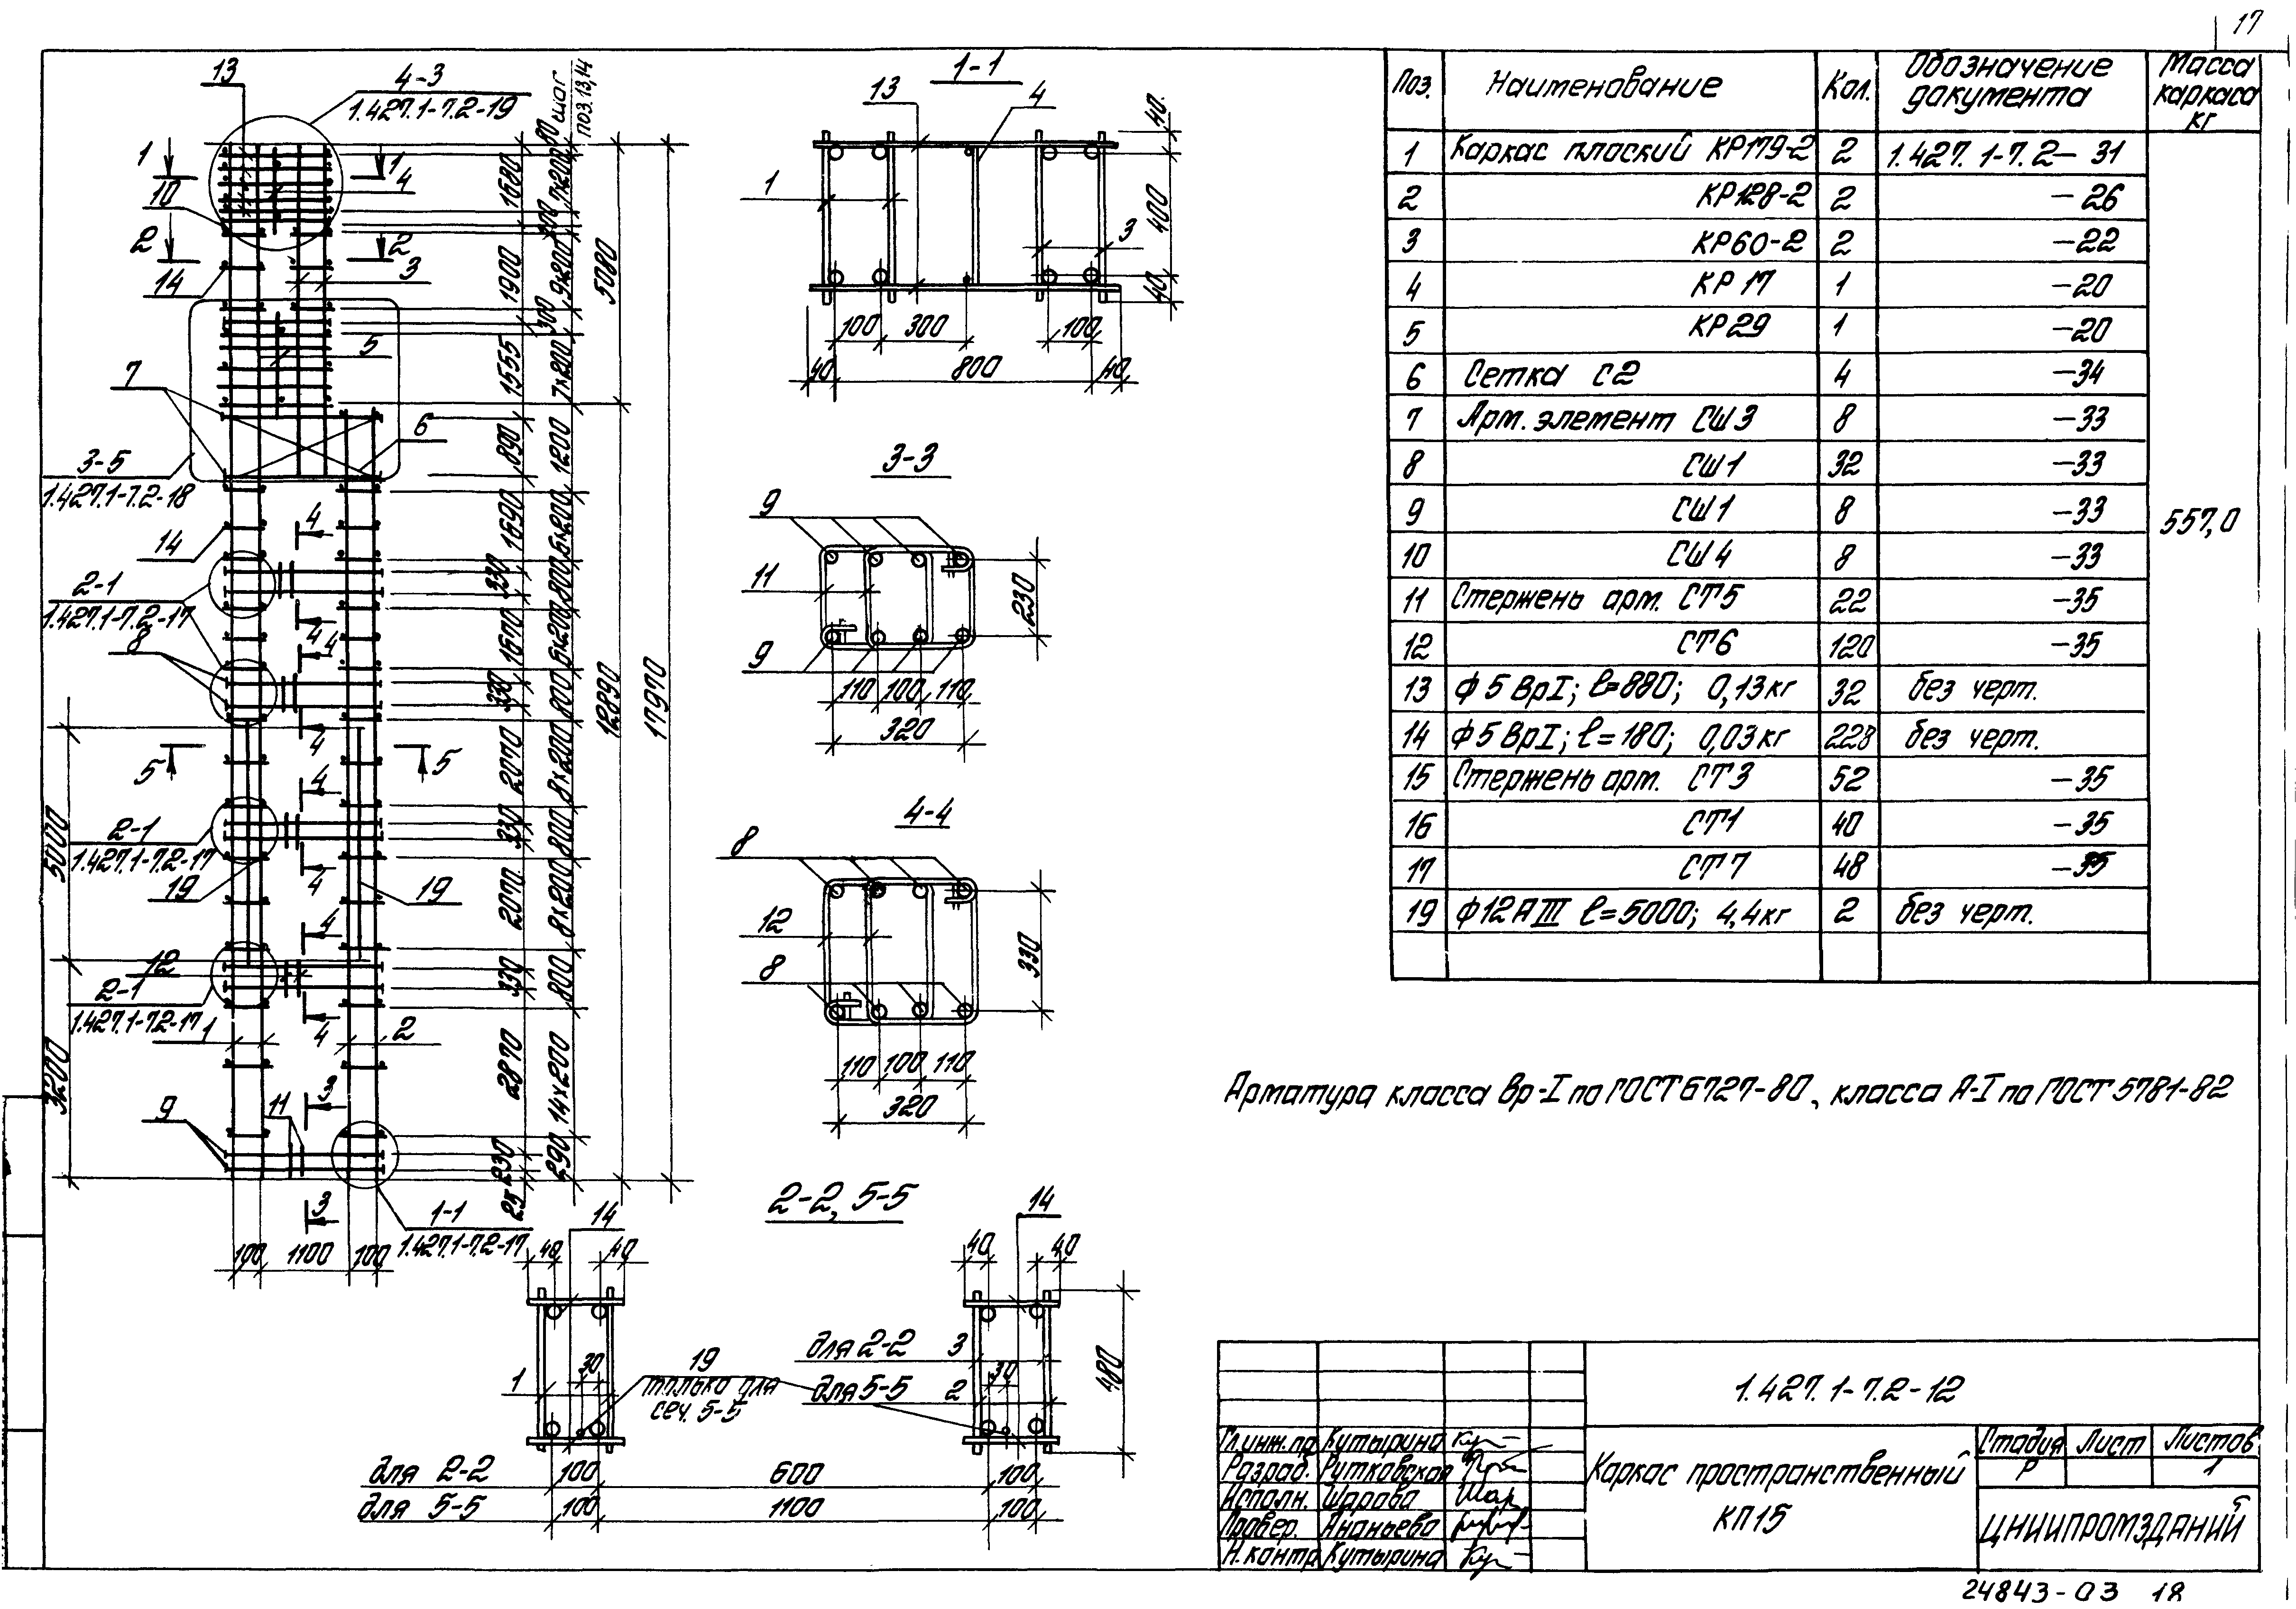 17
13
4-3
1.427.1-7.2-19
шаг
поз.13,14
1
1
10
4
2
2
14
3
5
7
6
3-5
1.427.1-7.2-18
14
4
2-1
1.427.1-7.2-17
4
4
8
4
5
5
4
2-1
1.427.1-7.2-17
4
19
19
4
12
2-1
1.427.1-7.2-17
4
1
2
3
9
11
3
1-1
1.427.1-7.2-17
100
1100
100
5000
3200
80
1680
7×200
300
1900
9×200
300
1555
7×200
890
1200
1690
5×200
330
800
1670
5×200
330
800
2070
8×200
330
800
2070
8×200
330
800
2870
14×200
230
290
25
5080
12890
17970
1-1
13
4
1
3
40
400
40
100
300
100
40
800
40
3-3
9
11
9
230
110
100
110
320
4-4
8
12
8
330
110
100
110
320
2-2, 5-5
14
14
40
40
40
40
1
30
19
только для
сеч. 5-5
для 2-2
3
30
для 5-5
2
480
для 2-2
100
600
100
для 5-5
100
1100
100
Поз.
Наименование
Кол.
Обозначение
документа
Масса
каркаса
кг
1 Каркас плоский КР179-2 2 1.427.1-7.2-31
2 КР128-2 2 -26
3 КР60-2 2 -22
4 КР17 1 -20
5 КР29 1 -20
6 Сетка С2 4 -34
7 Арм. элемент СШ3 8 -33
8 СШ1 32 -33
9 СШ1 8 -33
557,0
10 СШ4 8 -33
11 Стержень арм. СТ5 22 -35
12 СТ6 120 -35
13 ф5ВрI; ℓ=880; 0,13кг 32 без черт.
14 ф5ВрI; ℓ=180; 0,03кг 228 без черт.
15 Стержень арм. СТ3 52 -35
16 СТ1 40 -35
17 СТ7 48 -35
19 ф12АIII ℓ=5000; 4,4кг 2 без черт.
Арматура класса Вр-I по ГОСТ 6727-80, класса А-I по ГОСТ 5781-82
1.427.1-7.2-12
Гл.инж.пр Кутырина
Разраб. Рутковская
Исполн. Шарова
Провер. Ананьева
Н.контр. Кутырина
Каркас пространственный
КП15
Стадия Лист Листов
Р 1
ЦНИИПРОМЗДАНИЙ
24843-03 18